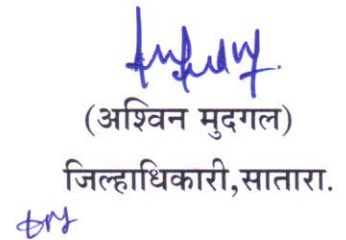 (अश्विन मुदगल)
जिल्हाधिकारी,सातारा.